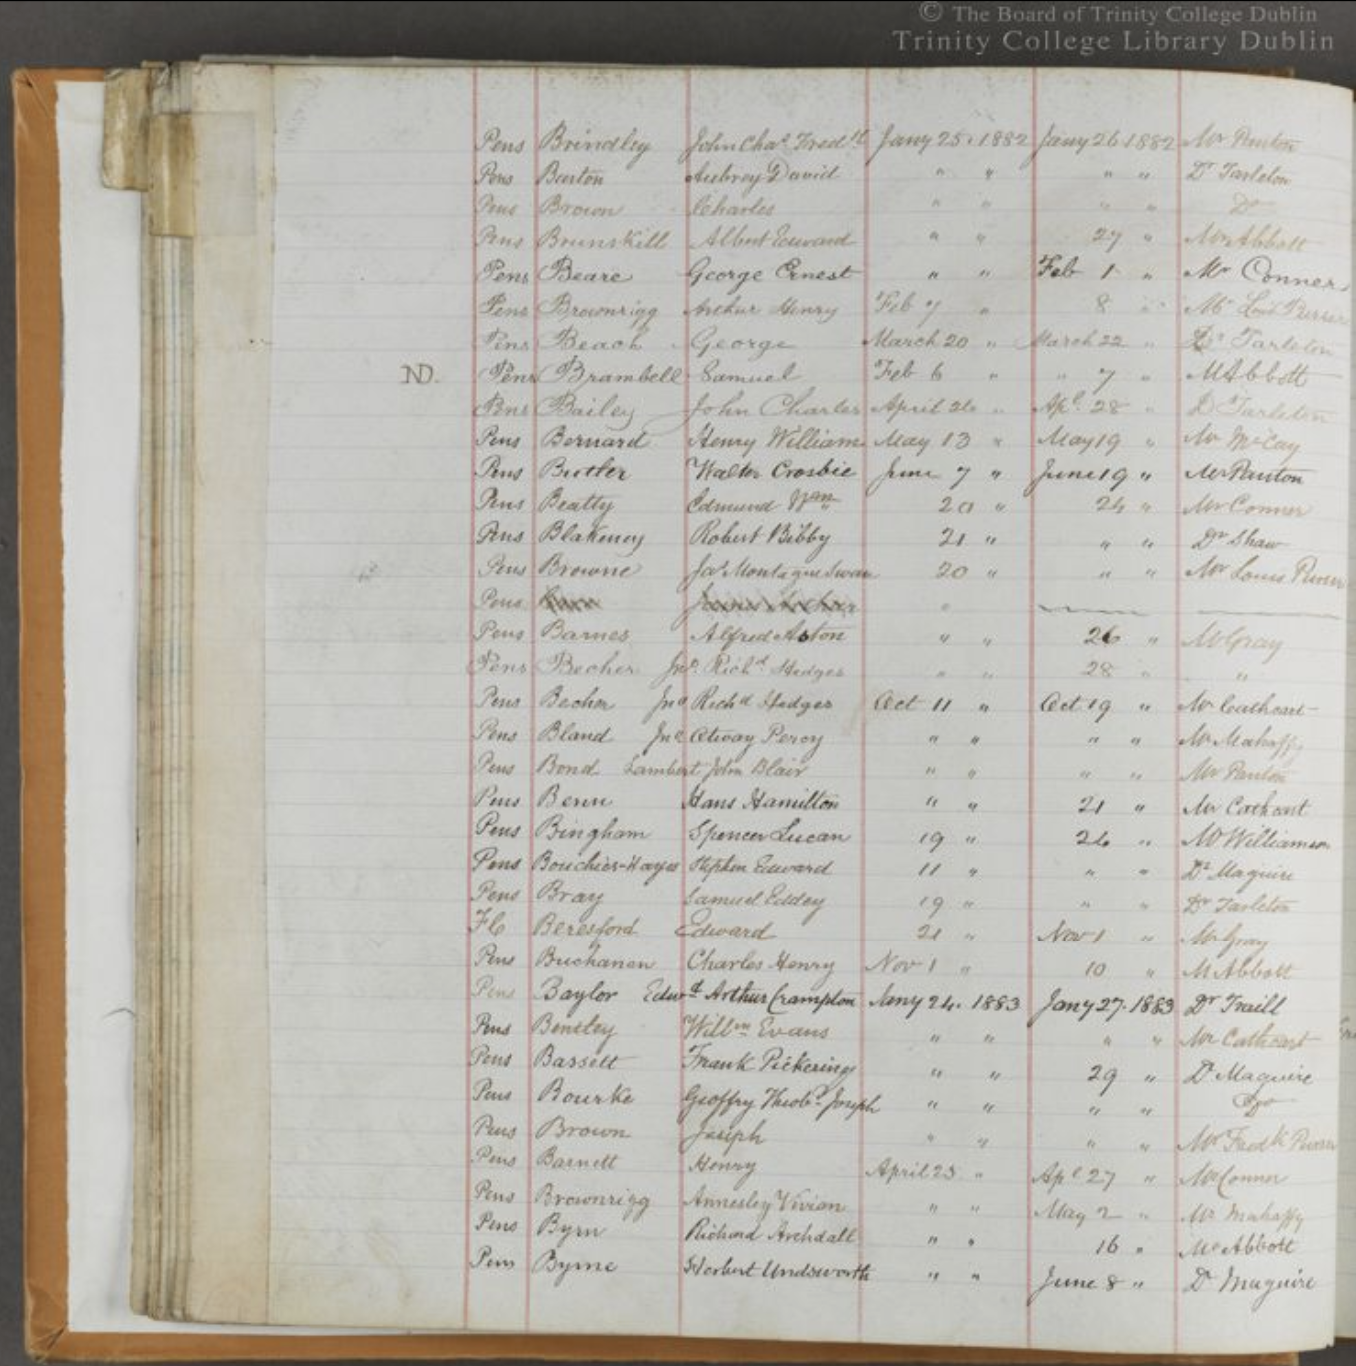 © The Board of Trinity College Dublin
Trinity College Library Dublin
Pens Brindley John Chas Fredk Jany 25. 1882 Jany 26 1882 Mr Panton
Pens Burton Aubrey David " " " " Dr Tarleton
Pens Brown Charles " " " " Do
Pens Brunskill Albert Edward " " 27 " Mr Abbott
Pens Beare George Ernest " " Feb 1 " Mr Conner
Pens Brownrigg Arthur Henry Feb 7 " 8 " Mr Louis Purser
Pens Beach George March 20 " March 22 " Dr Tarleton
ND. Pens Brambell Samuel Feb 6 " " 7 " Mr Abbott
Pens Bailey John Charles April 26 " Apl 28 " Dr Tarleton
Pens Bernard Henry William May 13 " May 19 " Mr McCay
Pens Butler Walter Crosbie June 7 " June 19 " Mr Panton
Pens Beatty Edmund Wm 20 " 24 " Mr Conner
Pens Blakeney Robert Bibby 21 " " " Dr Shaw
Pens Browne Jas Montague Swan 20 " " " Mr Louis Purser
Pens "
Pens Barnes Alfred Aston " " 26 " Mr Gray
Pens Becher Jno. Richd Hedges " " 28 " "
Pens Becher Jno Richd Hedges Oct 11 " Oct 19 " Mr Cathcart
Pens Bland Jno Otway Percy " " " " Mr Mahaffy
Pens Bond Lambert John Blair " " " " Mr Panton
Pens Benn Hans Hamilton " " 21 " Mr Cathcart
Pens Bingham Spencer Lucan 19 " 24 " Mr Williamson
Pens Bouchier-Hayes Stephen Edward 11 " " " Dr Maguire
Pens Bray Samuel Eddey 19 " " " Dr Tarleton
F.C. Beresford Edward 21 " Nov 1 " Mr Gray
Pens Buchanan Charles Henry Nov 1 " 10 " Mr Abbott
Pens Baylor Edwd Arthur Crampton Jany 24. 1883 Jany 27. 1883 Dr Traill
Pens Bentley Willm Evans " " " " Mr Cathcart
Pens Bassett Frank Pickering " " 29 " Dr Maguire
Pens Bourke Geoffry Theobd Joseph " " " " Do
Pens Brown Joseph " " " " Mr Fredk Purser
Pens Barnett Henry April 23 " Apl 27 " Mr Conner
Pens Brownrigg Annesley Vivian " " May 2 " Mr Mahaffy
Pens Byrn Richard Archdall " " 16 " Mr Abbott
Pens Byrne Herbert Undsworth " " June 8 " Dr Maguire